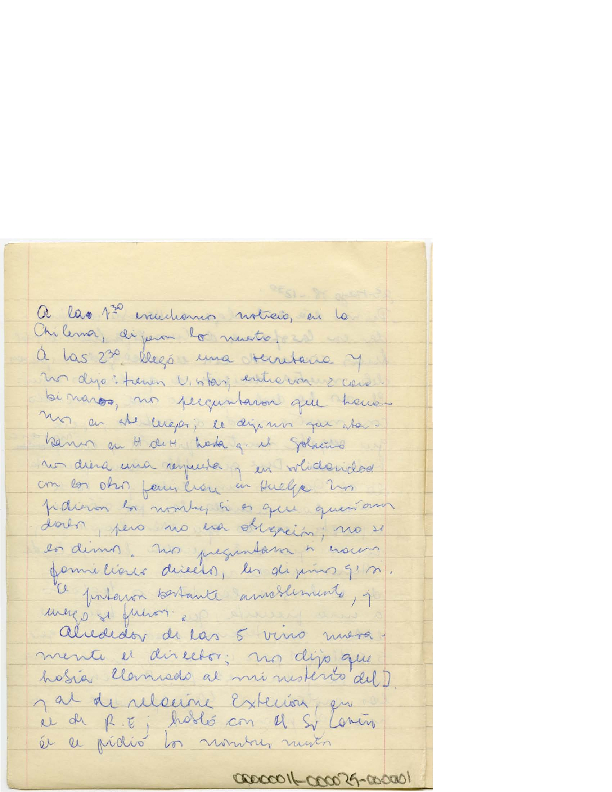 A las 1³⁰ escuchamos noticias, en la
Chilena, dijeron lo nuestro.
A las 2³⁰ llegó una secretaria y
nos dijo: tienen visitas, entraron 2 cara
bineros, nos preguntaron que hacia-
mos en este lugar, le dijimos que esta-
bamos en H de H hasta q el Gobierno
nos diera una respuesta y en solidaridad
con los otros familiares en Huelga. Nos
pidieron los nombres, si es que queriamos
darlos, pero no era obligación; no se
los dimos. Nos preguntaron si eramos
familiares directos, les dijimos q' si.
Se portaron bastante amablemente, y
luego se fueron.
Alrededor de las 5 vino nueva-
mente el director; nos dijo que
había llamado al ministerio del I
y al de relaciones Exteriores, en
el de R.E; habló con el Sr
él le pidió los nombres nuestros
0000001-000029-000001